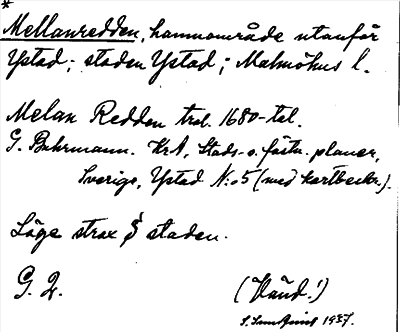 *
Mellanredden, hamnområde utanför
Ystad; staden Ystad; Malmöhus l.
Melan Redden trol. 1680-tal.
G. Buhrmann. KrA, Stads- o. fästn. planer,
Sverige, Ystad N:o 5 (med kartbeckn.).
Läge strax S staden.
G. 2.
(Vänd!)
1937.